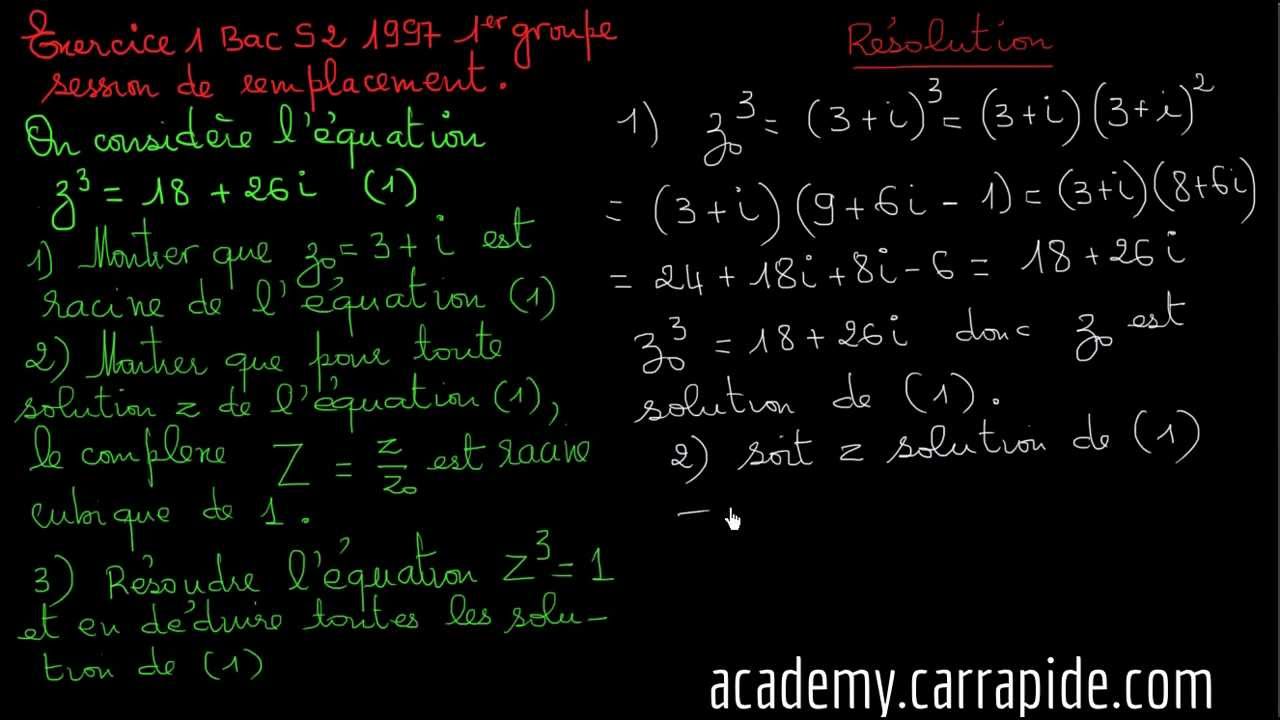 Exercice 1 Bac S2 1997 1er groupe
session de remplacement.
On considère l'équation
z³ = 18 + 26i (1)
1) Montrer que z₀ = 3 + i est
racine de l'équation (1)
2) Montrer que pour toute
solution z de l'équation (1),
le complexe Z = z/z₀ est racine
cubique de 1.
3) Résoudre l'équation Z³ = 1
et en déduire toutes les solu-
tion de (1)
Résolution
1) z₀³ = (3+i)³ = (3+i)(3+i)²
= (3+i)(9+6i-1) = (3+i)(8+6i)
= 24 + 18i + 8i - 6 = 18 + 26i
z₀³ = 18 + 26i donc z₀ est
solution de (1).
2) soit z solution de (1)
academy.carrapide.com